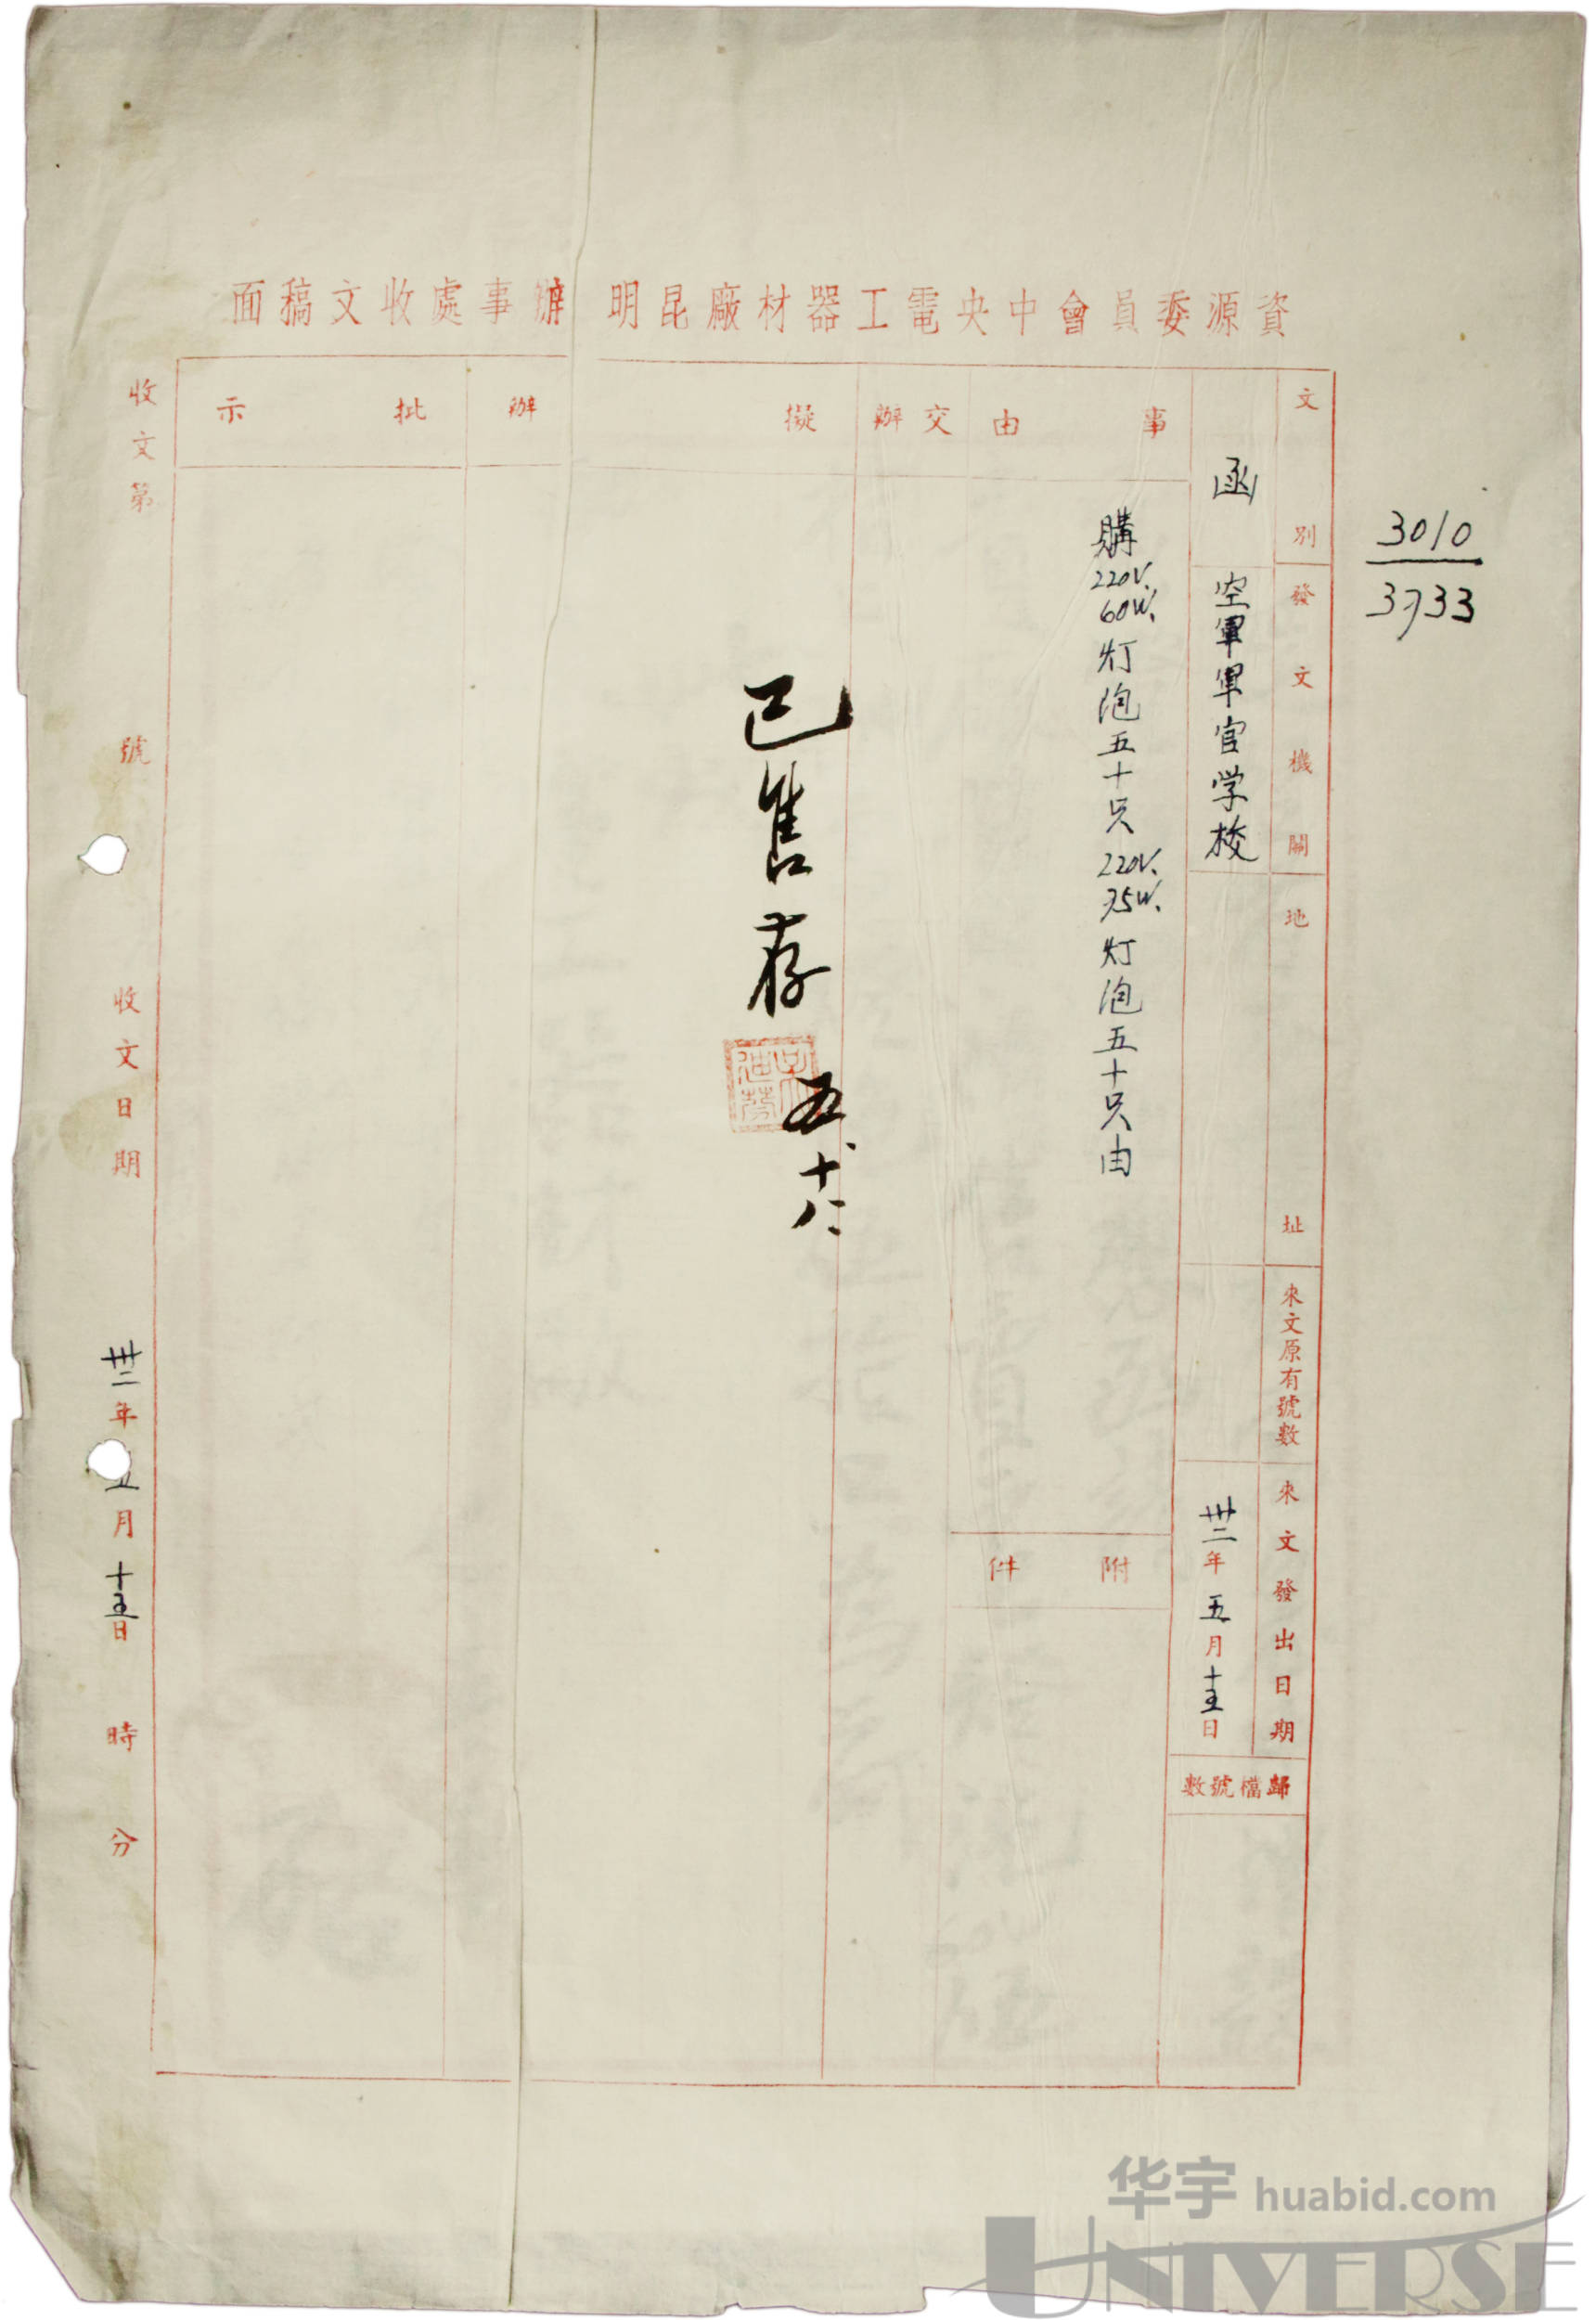 資源委員會中央電工器材廠昆明辦事處收文稿面
3010
3733
文別
函
發文機關
空軍軍官学校
地址
來文原有號數
來文發出日期
卅二年五月十五日
歸檔號數
事由
購220V.60W.灯泡五十只220V.75W.灯泡五十只由
附件
交辦
擬辦
已售存
五十八
批示
收文第號
收文日期卅二年五月十五日時分
华宇 huabid.com
UNIVERSE